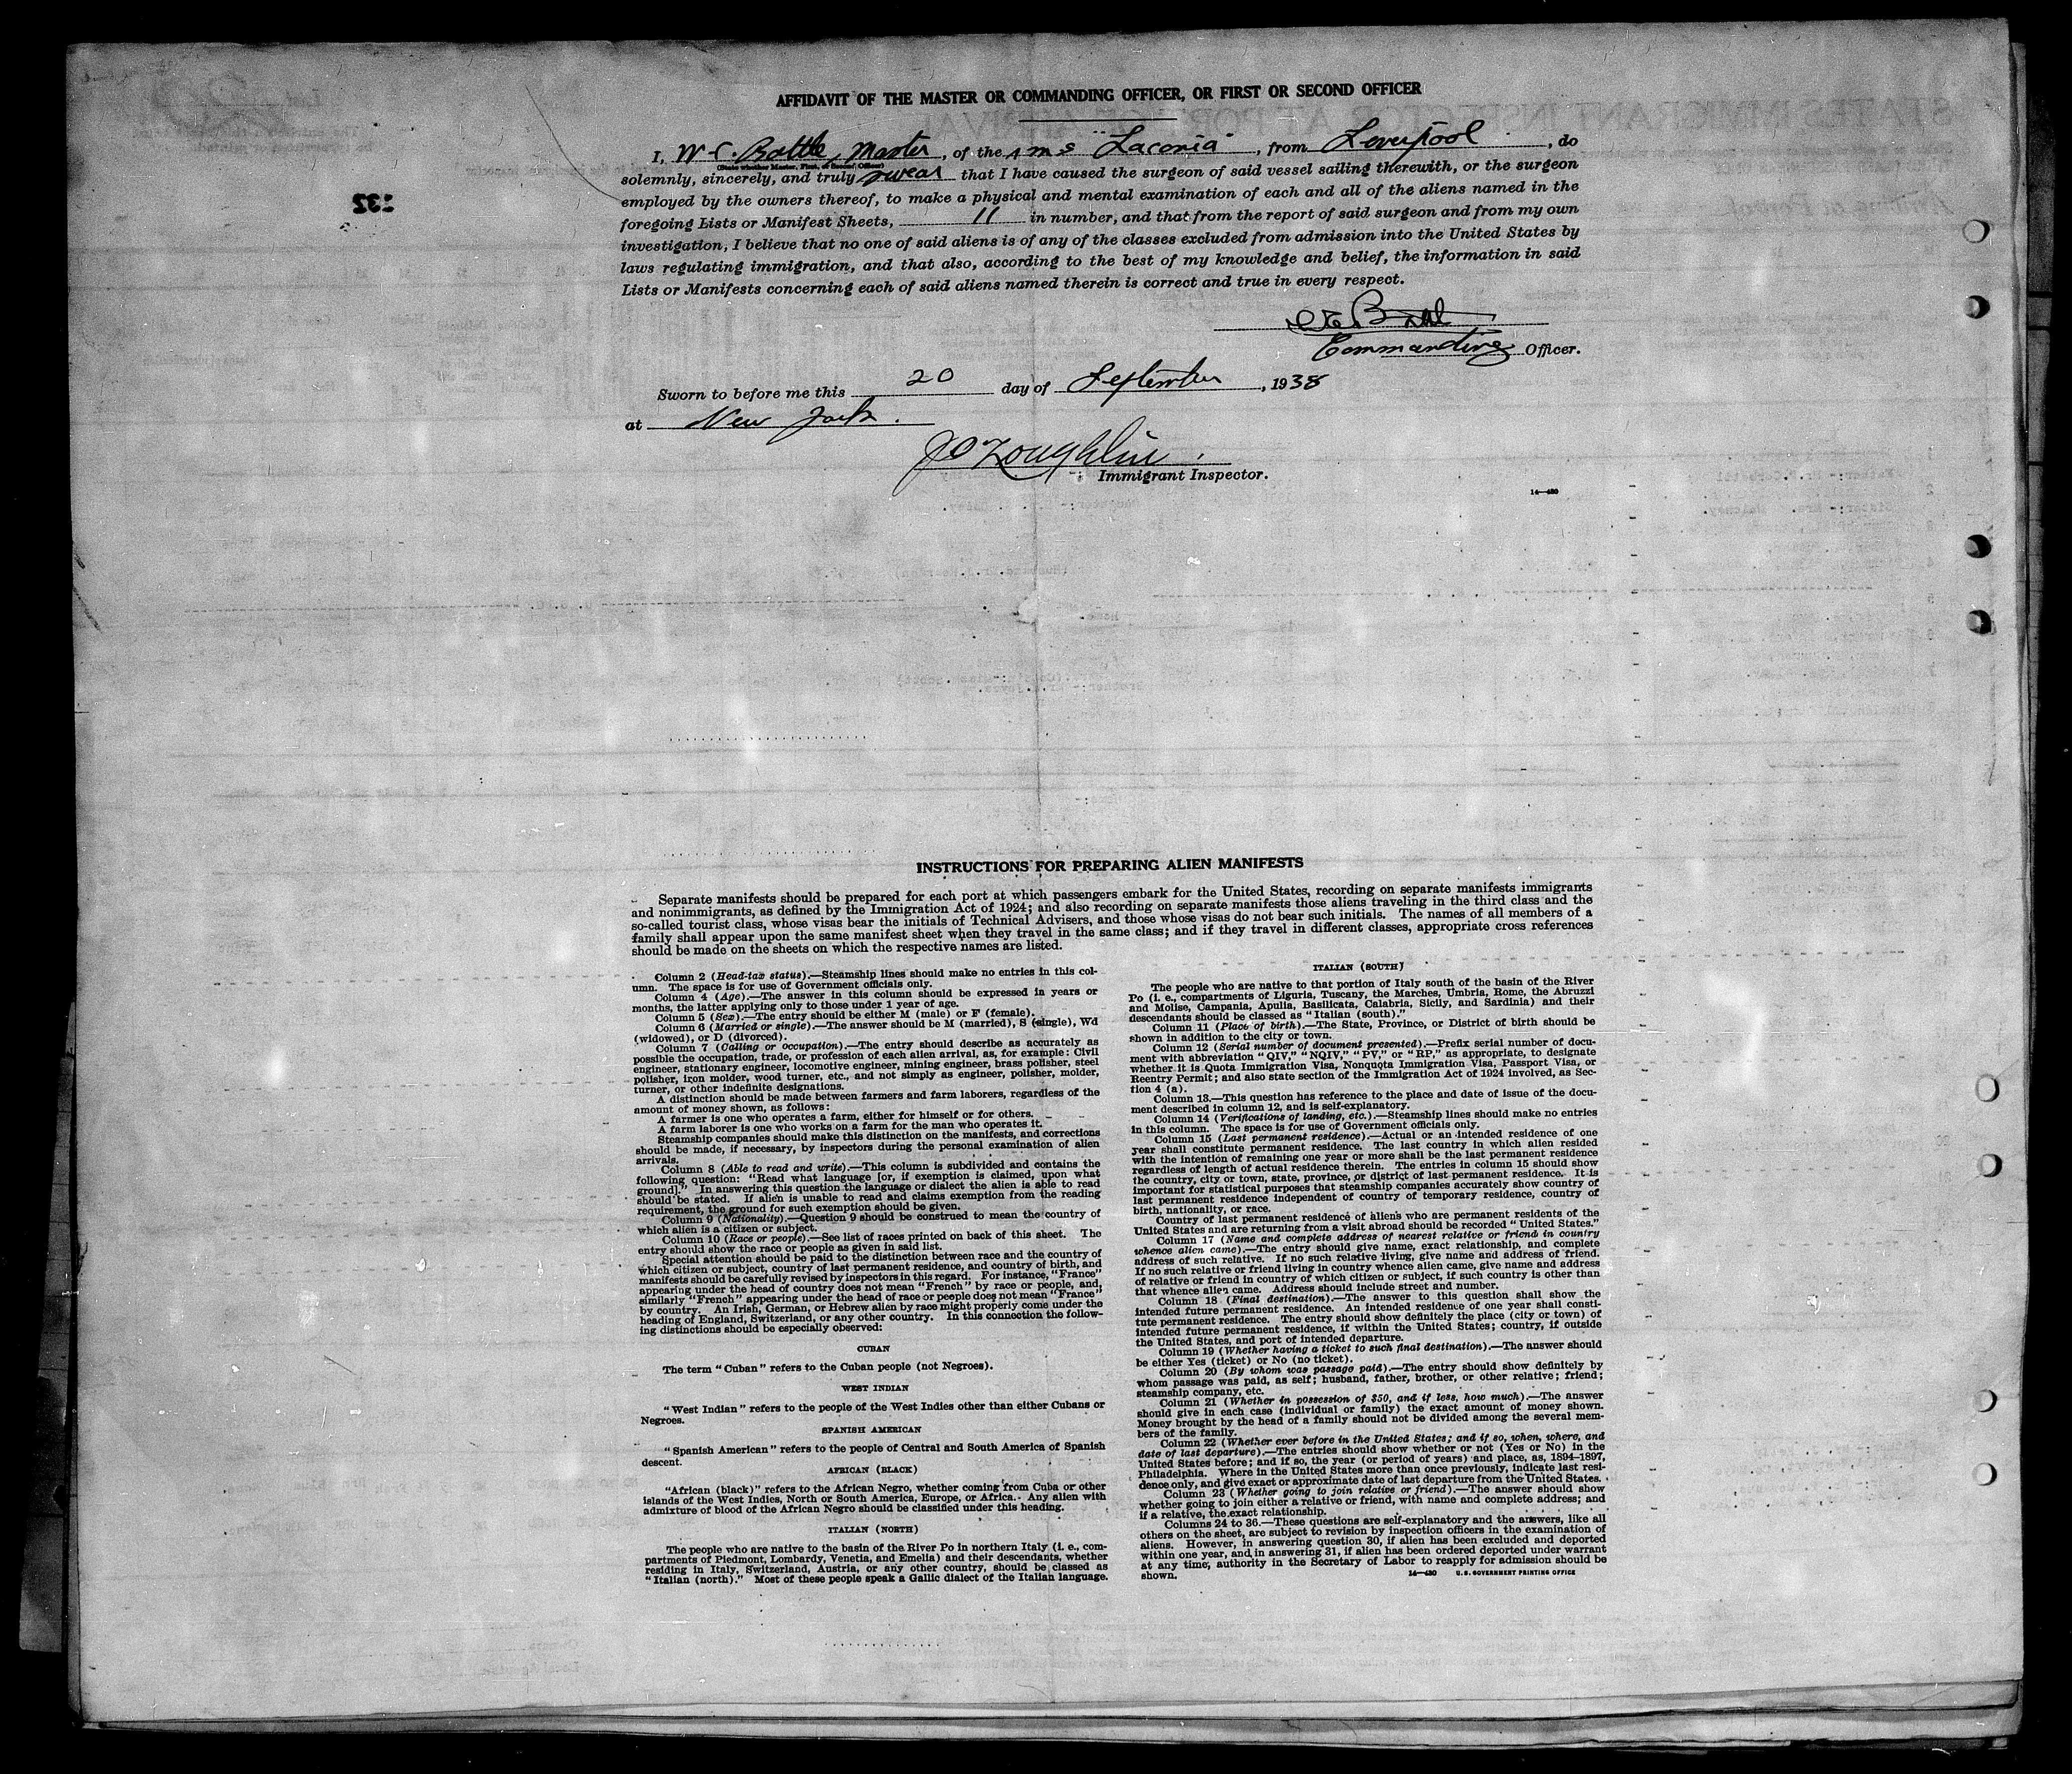 AFFIDAVIT OF THE MASTER OR COMMANDING OFFICER, OR FIRST OR SECOND OFFICER
I, W. C. Battle, Master, of the "Laconia", from Liverpool, do
(State whether Master, First, or Second Officer)
solemnly, sincerely, and truly swear that I have caused the surgeon of said vessel sailing therewith, or the surgeon
employed by the owners thereof, to make a physical and mental examination of each and all of the aliens named in the
foregoing Lists or Manifest Sheets, 11 in number, and that from the report of said surgeon and from my own
investigation, I believe that no one of said aliens is of any of the classes excluded from admission into the United States by
laws regulating immigration, and that also, according to the best of my knowledge and belief, the information in said
Lists or Manifests concerning each of said aliens named therein is correct and true in every respect.
Commanding Officer.
Sworn to before me this 20 day of September, 1938
at New York.
JO Loughlin.
Immigrant Inspector.
14—430
INSTRUCTIONS FOR PREPARING ALIEN MANIFESTS
Separate manifests should be prepared for each port at which passengers embark for the United States, recording on separate manifests immigrants
and nonimmigrants, as defined by the Immigration Act of 1924; and also recording on separate manifests those aliens traveling in the third class and the
so-called tourist class, whose visas bear the initials of Technical Advisers, and those whose visas do not bear such initials. The names of all members of a
family shall appear upon the same manifest sheet when they travel in the same class; and if they travel in different classes, appropriate cross references
should be made on the sheets on which the respective names are listed.
Column 2 (Head-tax status).—Steamship lines should make no entries in this col-
umn. The space is for use of Government officials only.
Column 4 (Age).—The answer in this column should be expressed in years or
months, the latter applying only to those under 1 year of age.
Column 5 (Sex).—The entry should be either M (male) or F (female).
Column 6 (Married or single).—The answer should be M (married), S (single), Wd
(widowed), or D (divorced).
Column 7 (Calling or occupation).—The entry should describe as accurately as
possible the occupation, trade, or profession of each alien arrival, as, for example: Civil
engineer, stationary engineer, locomotive engineer, mining engineer, brass polisher, steel
polisher, iron molder, wood turner, etc., and not simply as engineer, polisher, molder,
turner, or other indefinite designations.
A distinction should be made between farmers and farm laborers, regardless of the
amount of money shown, as follows:
A farmer is one who operates a farm, either for himself or for others.
A farm laborer is one who works on a farm for the man who operates it.
Steamship companies should make this distinction on the manifests, and corrections
should be made, if necessary, by inspectors during the personal examination of alien
arrivals.
Column 8 (Able to read and write).—This column is subdivided and contains the
following question: "Read what language [or, if exemption is claimed, upon what
ground]." In answering this question the language or dialect the alien is able to read
should be stated. If alien is unable to read and claims exemption from the reading
requirement, the ground for such exemption should be given.
Column 9 (Nationality).—Question 9 should be construed to mean the country of
which alien is a citizen or subject.
Column 10 (Race or people).—See list of races printed on back of this sheet. The
entry should show the race or people as given in said list.
Special attention should be paid to the distinction between race and the country of
which citizen or subject, country of last permanent residence, and country of birth, and
manifests should be carefully revised by inspectors in this regard. For instance, "France"
appearing under the head of country does not mean "French" by race or people, and,
similarly "French" appearing under the head of race or people does not mean "France"
by country. An Irish, German, or Hebrew alien by race might properly come under the
heading of England, Switzerland, or any other country. In this connection the follow-
ing distinctions should be especially observed:
CUBAN
The term "Cuban" refers to the Cuban people (not Negroes).
WEST INDIAN
"West Indian" refers to the people of the West Indies other than either Cubans or
Negroes.
SPANISH AMERICAN
"Spanish American" refers to the people of Central and South America of Spanish
descent.
AFRICAN (BLACK)
"African (black)" refers to the African Negro, whether coming from Cuba or other
islands of the West Indies, North or South America, Europe, or Africa. Any alien with
admixture of blood of the African Negro should be classified under this heading.
ITALIAN (NORTH)
The people who are native to the basin of the River Po in northern Italy (i. e., com-
partments of Piedmont, Lombardy, Venetia, and Emelia) and their descendants, whether
residing in Italy, Switzerland, Austria, or any other country, should be classed as
"Italian (north)." Most of these people speak a Gallic dialect of the Italian language.
ITALIAN (SOUTH)
The people who are native to that portion of Italy south of the basin of the River
Po (i. e., compartments of Liguria, Tuscany, the Marches, Umbria, Rome, the Abruzzi
and Molise, Campania, Apulia, Basilicata, Calabria, Sicily, and Sardinia) and their
descendants should be classed as "Italian (south)."
Column 11 (Place of birth).—The State, Province, or District of birth should be
shown in addition to the city or town.
Column 12 (Serial number of document presented).—Prefix serial number of docu-
ment with abbreviation "QIV," "NQIV," "PV," or "RP," as appropriate, to designate
whether it is Quota Immigration Visa, Nonquota Immigration Visa, Passport Visa, or
Reentry Permit; and also state section of the Immigration Act of 1924 involved, as Sec-
tion 4 (a).
Column 13.—This question has reference to the place and date of issue of the docu-
ment described in column 12, and is self-explanatory.
Column 14 (Verifications of landing, etc.).—Steamship lines should make no entries
in this column. The space is for use of Government officials only.
Column 15 (Last permanent residence).—Actual or an intended residence of one
year shall constitute permanent residence. The last country in which alien resided
with the intention of remaining one year or more shall be the last permanent residence
regardless of length of actual residence therein. The entries in column 15 should show
the country, city or town, state, province, or district of last permanent residence. It is
important for statistical purposes that steamship companies accurately show country of
last permanent residence independent of country of temporary residence, country of
birth, nationality, or race.
Country of last permanent residence of aliens who are permanent residents of the
United States and are returning from a visit abroad should be recorded "United States."
Column 17 (Name and complete address of nearest relative or friend in country
whence alien came).—The entry should give name, exact relationship, and complete
address of such relative. If no such relative living, give name and address of friend.
If no such relative or friend living in country whence alien came, give name and address
of relative or friend in country of which citizen or subject, if such country is other than
that whence alien came. Address should include street and number.
Column 18 (Final destination).—The answer to this question shall show the
intended future permanent residence. An intended residence of one year shall consti-
tute permanent residence. The entry should show definitely the place (city or town) of
intended future permanent residence, if within the United States; country, if outside
the United States, and port of intended departure.
Column 19 (Whether having a ticket to such final destination).—The answer should
be either Yes (ticket) or No (no ticket).
Column 20 (By whom was passage paid).—The entry should show definitely by
whom passage was paid, as self; husband, father, brother, or other relative; friend;
steamship company, etc.
Column 21 (Whether in possession of $50, and if less, how much).—The answer
should give in each case (individual or family) the exact amount of money shown.
Money brought by the head of a family should not be divided among the several mem-
bers of the family.
Column 22 (Whether ever before in the United States; and if so, when, where, and
date of last departure).—The entries should show whether or not (Yes or No) in the
United States before; and if so, the year (or period of years) and place, as, 1894-1897,
Philadelphia. Where in the United States more than once previously, indicate last resi-
dence only, and give exact or approximate date of last departure from the United States.
Column 23 (Whether going to join relative or friend).—The answer should show
whether going to join either a relative or friend, with name and complete address; and
if a relative, the exact relationship.
Columns 24 to 36.—These questions are self-explanatory and the answers, like all
others on the sheet, are subject to revision by inspection officers in the examination of
aliens. However, in answering question 30, if alien has been excluded and deported
within one year, and in answering 31, if alien has been ordered deported under warrant
at any time, authority in the Secretary of Labor to reapply for admission should be
shown.
14—430 U. S. GOVERNMENT PRINTING OFFICE